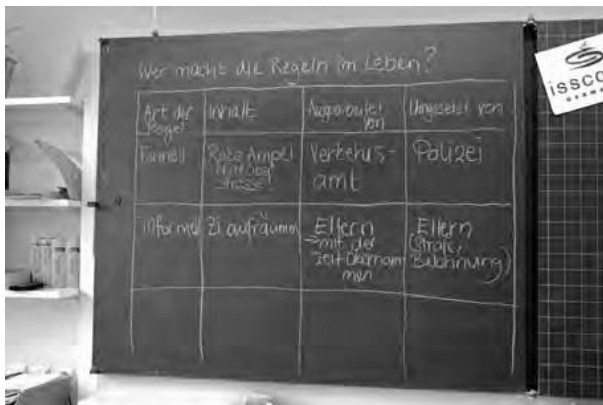 Wer macht die Regeln im Leben?
Art der Regel
Inhalt
Ausgearbeitet von
Umgesetzt von
Formell
Rote Ampel
Verkehrs-
amt
Polizei
Informell
Zi aufräumen
Eltern
mit der
Zeit
Eltern
(Strafe,
Belohnung)
issco
GERMANY